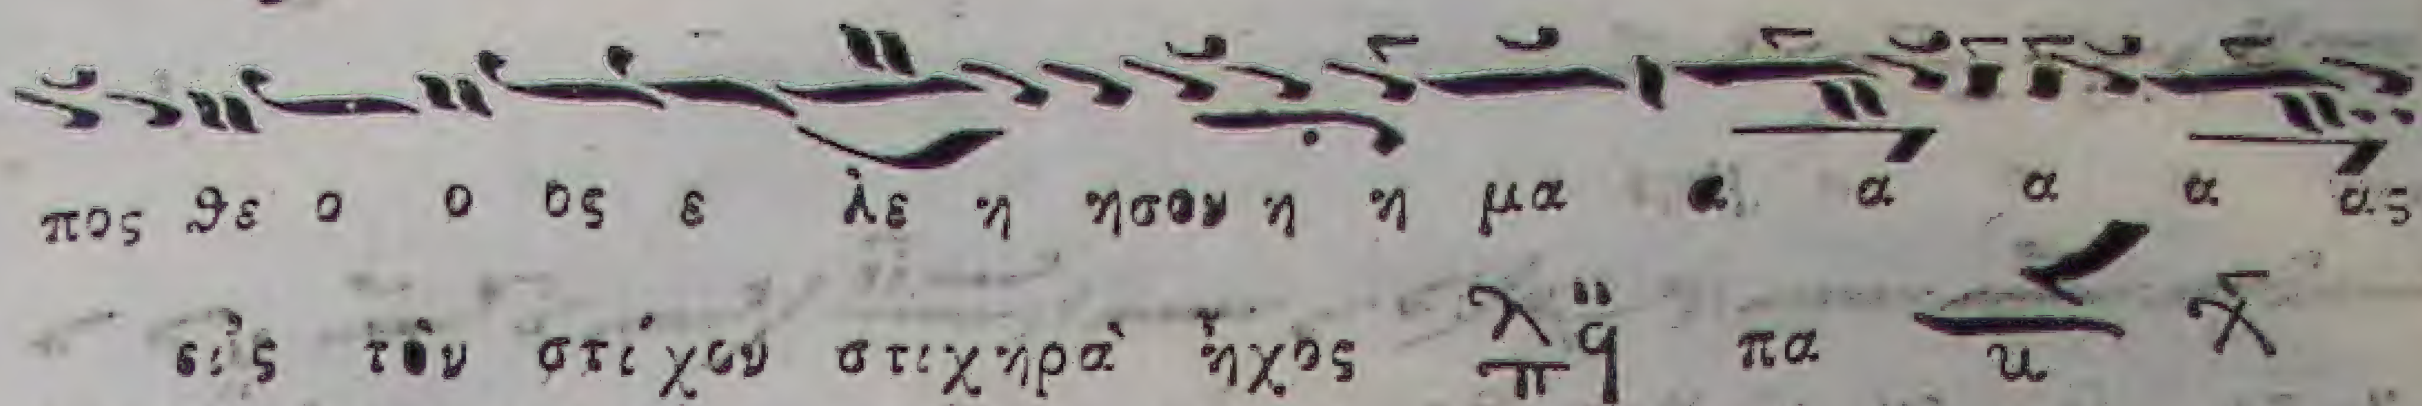 πος θε ο ο ος ε λε η ησον η η μα α α α α ας
εἰς τὸν στίχον στιχηρὰ ἦχος λ π ᾳ̈ πα